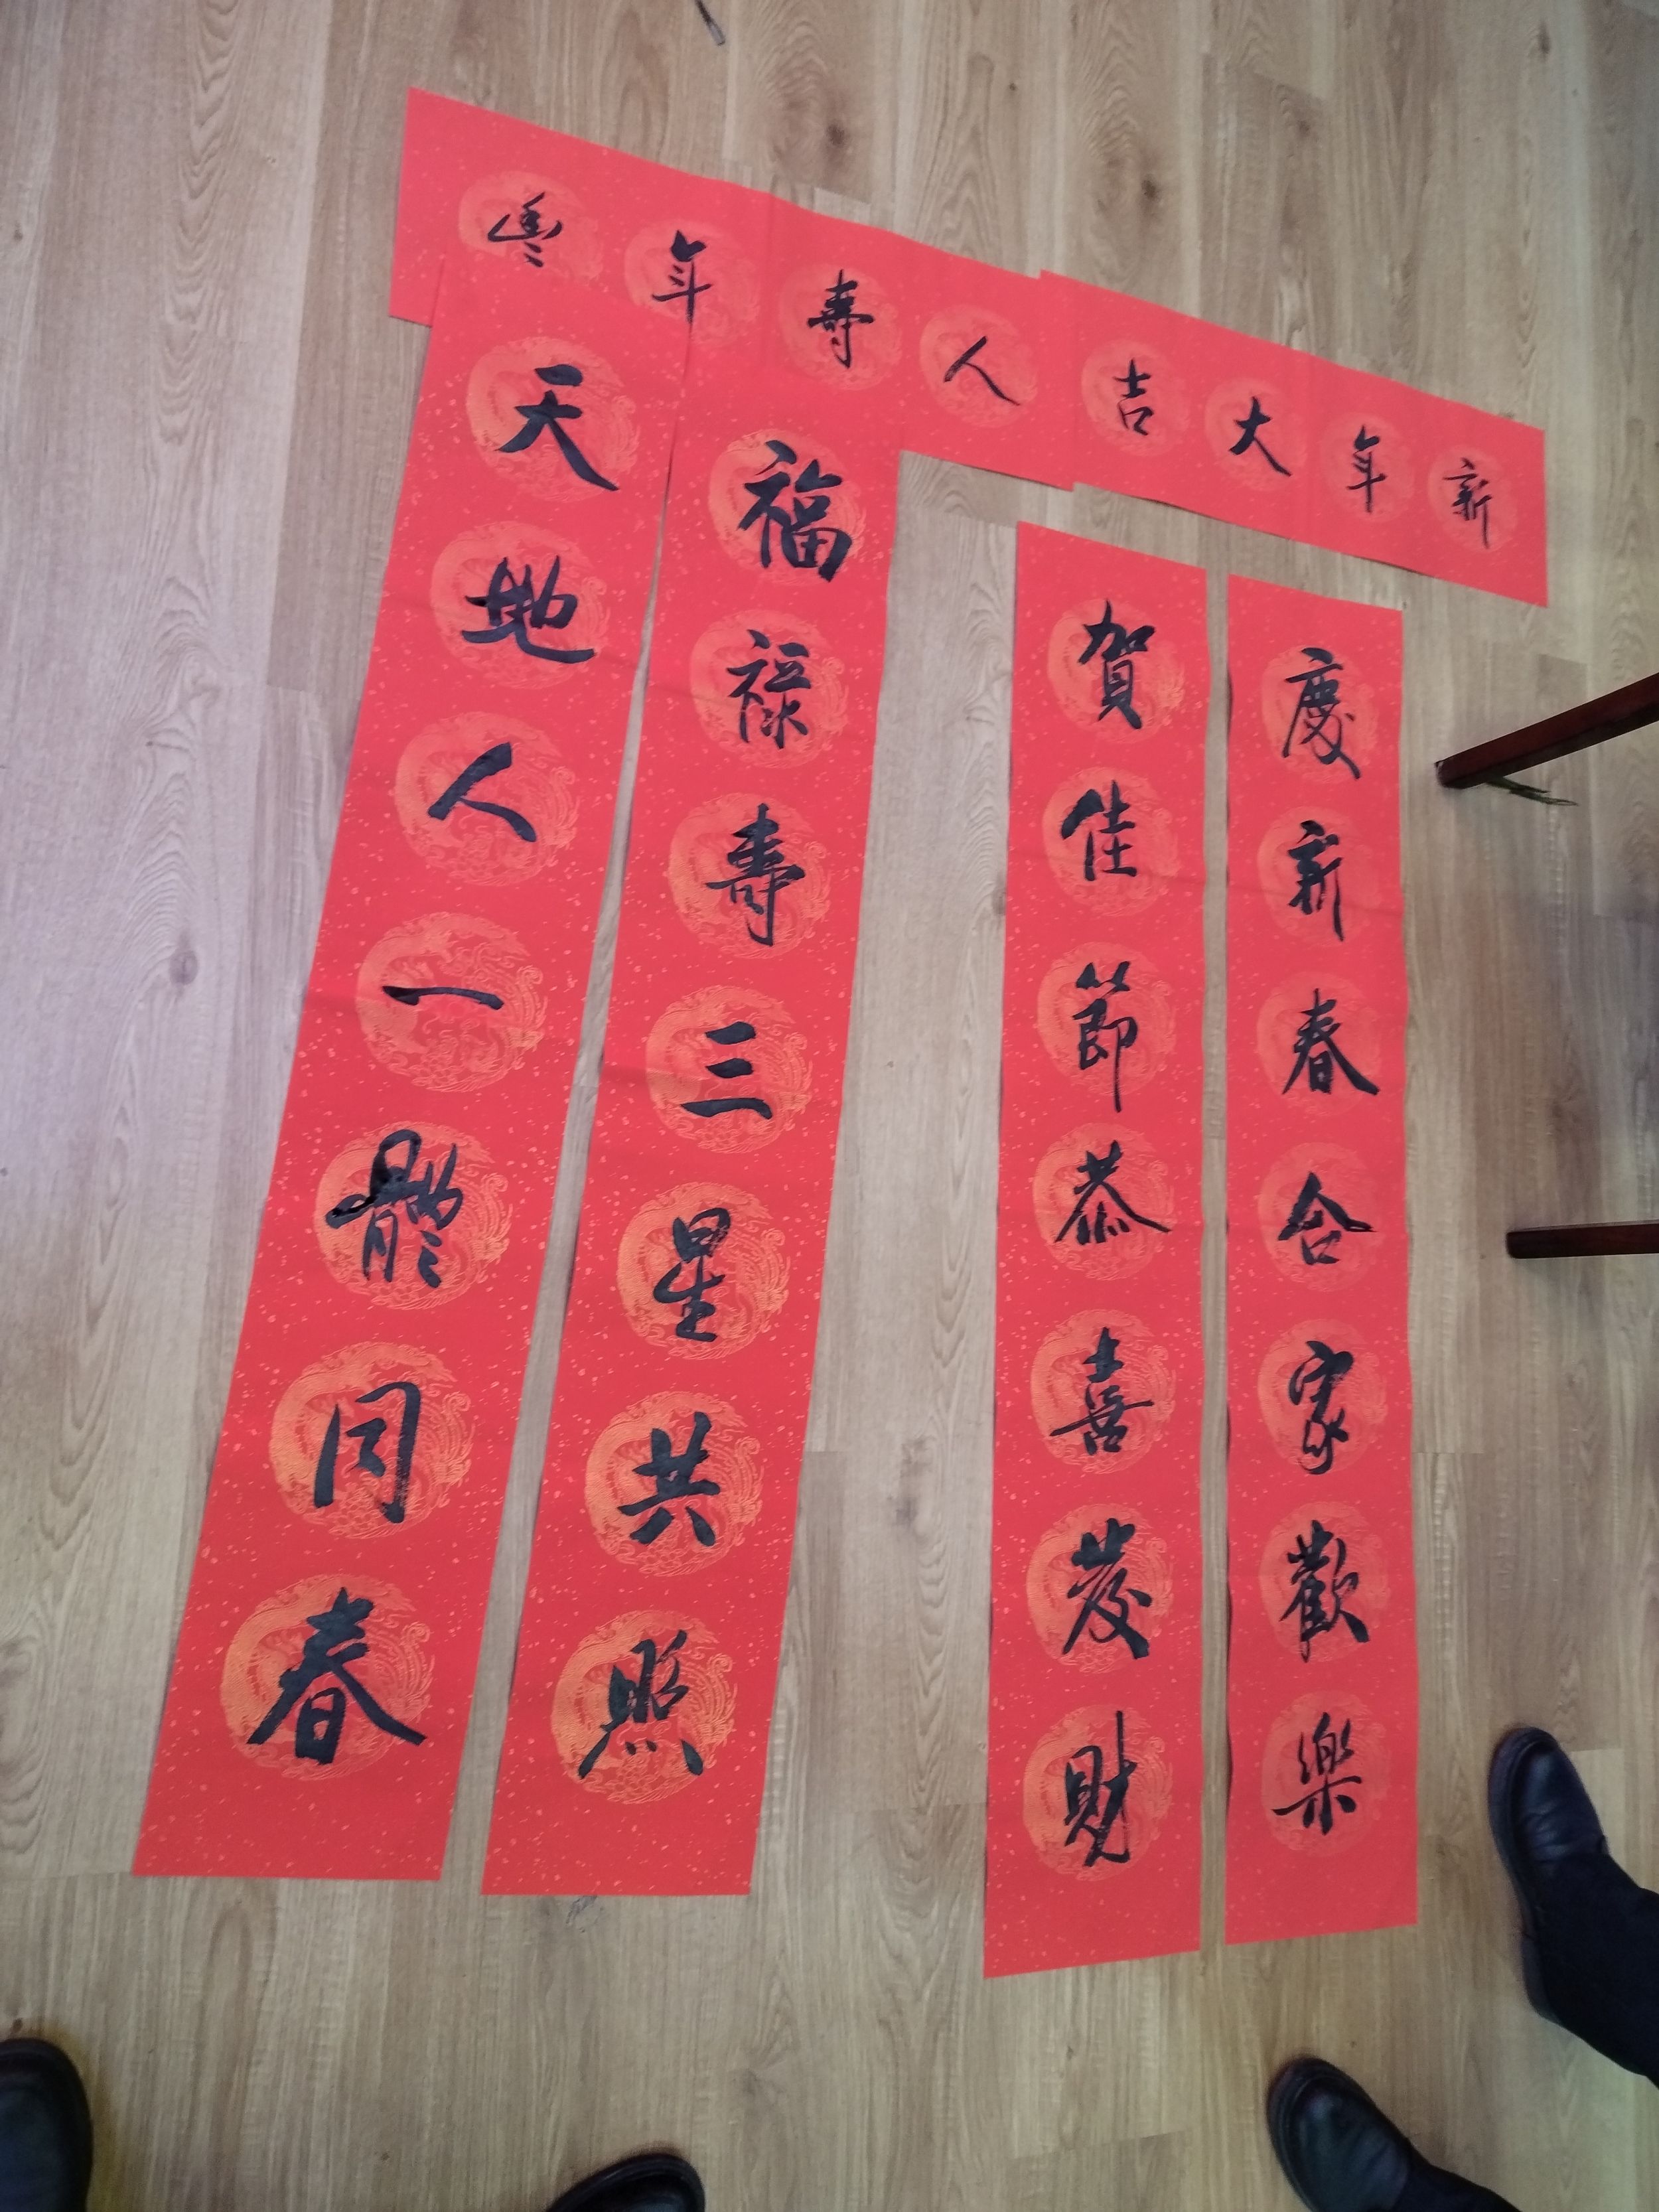 新年大吉
人壽年豐
慶新春合家歡樂
賀佳節恭喜發財
福祿壽三星共照
天地人一體同春